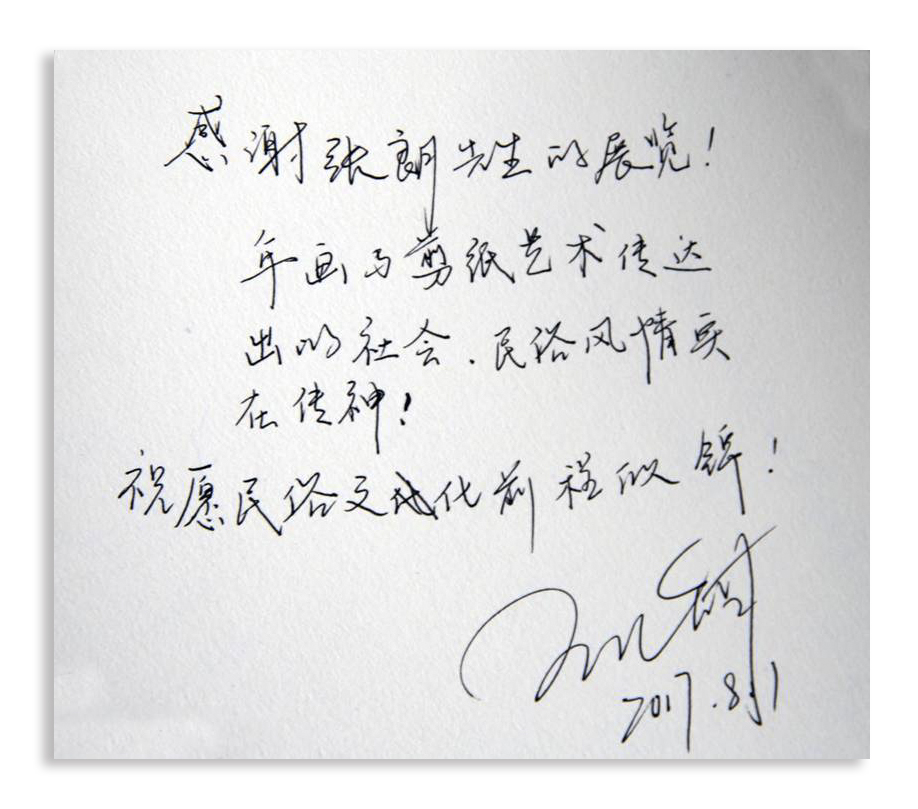 感谢张朗先生的展览！
年画与剪纸艺术传达
出的社会、民俗风情实
在传神！
祝愿民俗文化前程似锦！
2017.8.1